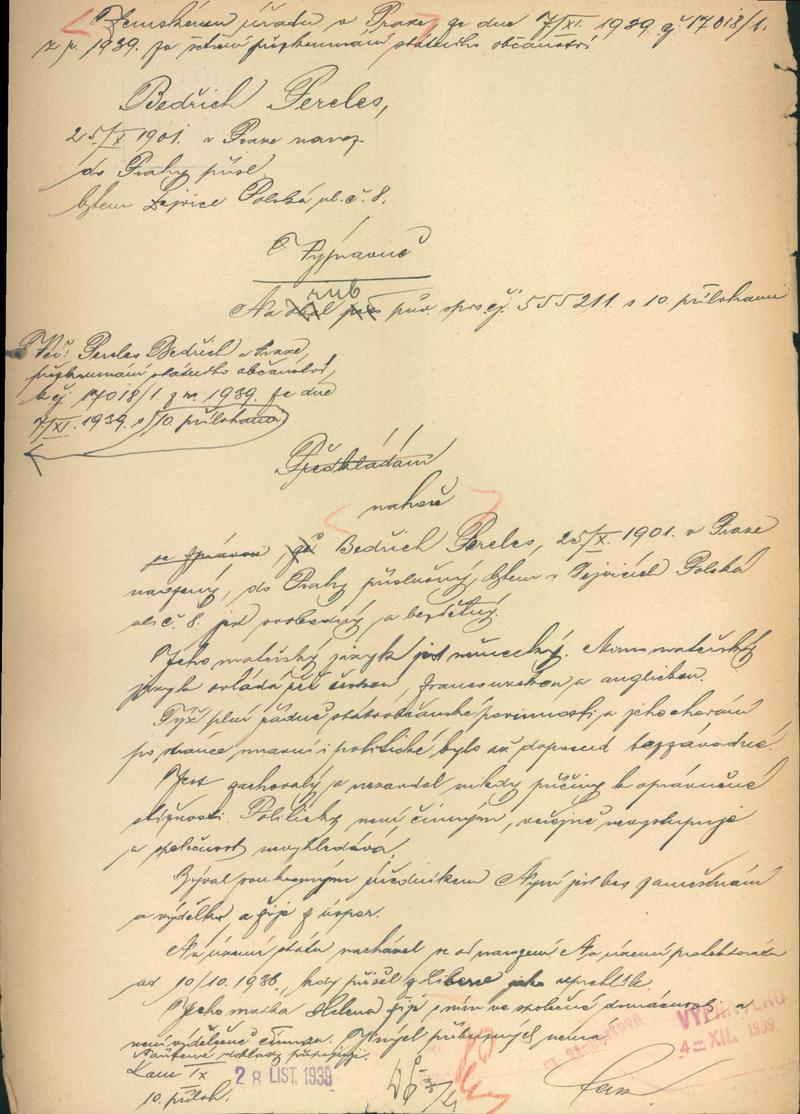 Zemskému úřadu v Praze ze dne 7/XI. 1939 č 17018/1.
z r. 1939. přezkoumání státního občanství
Bedřich Pereles,
25/X 1901. v Praze naroz
do Prahy přísl.
bytem Dejvice Polská ul. č. 8.
Výpravně
rub
Na pův. spis čj. 555211. s 10. přílohami
Věc: Pereles Bedřich v Praze,
přezkoumání státního občanství,
k čj. 17018/1. z r. 1939. ze dne
7/XI. 1939. s 10. přílohami
Předkládám
nahoře
se zprávou, že Bedřich Pereles, 25/X. 1901. v Praze
narozený, do Prahy příslušný, bytem v Dejvicích Polská
ul. č. 8. jest svobodný a bezdětný.
Jeho mateřský jazyk jest německý. Mimo mateřský
jazyk ovládá též českou, francouzskou a anglickou.
Týž plní řádně státoobčanské povinnosti a jeho chování
po stránce mravní i politické, bylo až doposud bezzávadné.
Jest zachovalý a nezavdal nikdy příčiny k oprávněné
stížnosti. Politicky není činným, veřejně nevystupuje
a společnost nevyhledává.
Býval soukromým úředníkem Nyní jest bez zaměstnání
a výdělku, a žije z úspor.
Na území státu nacházel se od narození Na území protektorátu
od 10/10. 1938., kdy přišel z Liberce jako uprchlík.
Jeho matka Helena žije s ním ve společné domácnosti a
není výdělečně činna. Jiných příbuzných nemá.
Nařízené doklady připojuji.
28 LIST. 1939
10. příloh.
VYPRAVENO
4 XII. 1939